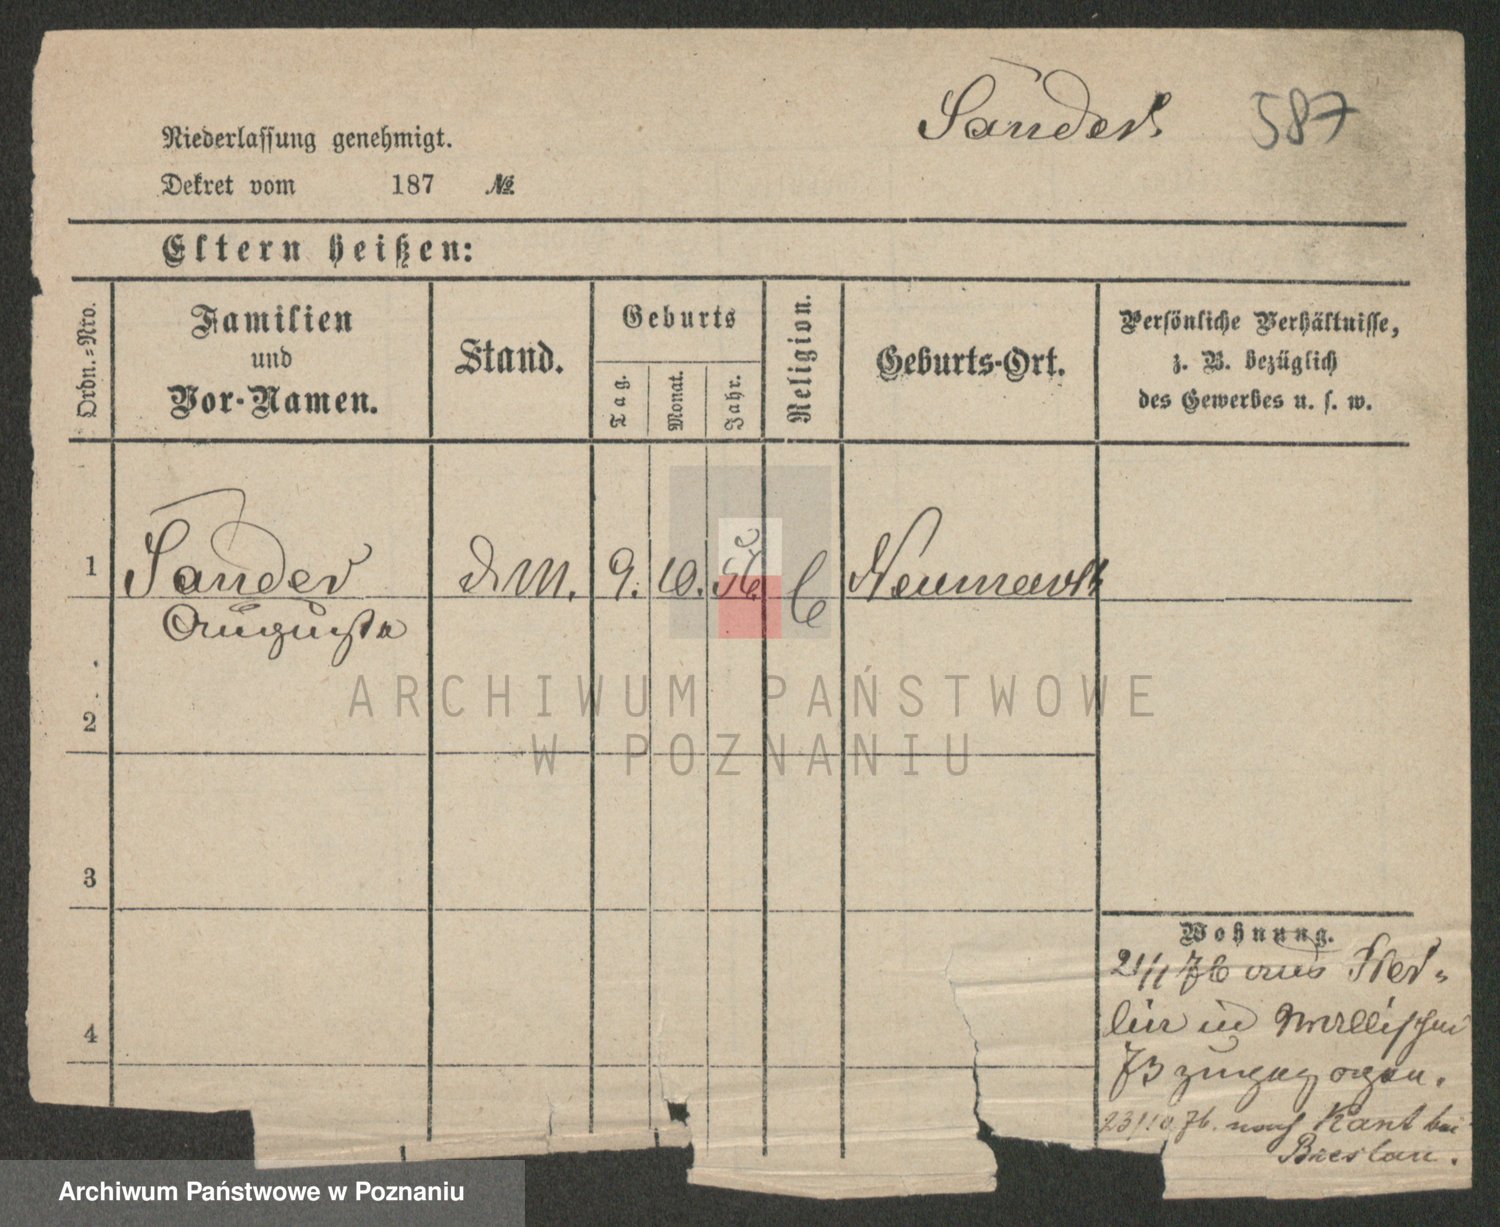 Sander. 587
Niederlassung genehmigt.
Dekret vom 187 №
Eltern heißen:
Ordn.-Nro.
Familien
und
Vor-Namen.
Stand.
Geburts
Tag.
Monat.
Jahr.
Religion.
Geburts-Ort.
Persönliche Verhältnisse,
z. B. bezüglich
des Gewerbes u. s. w.
1 Sander 9. 10. 56 Neumarkt
Auguste
2
3
4
Wohnung.
21/1 76 aus Ber-
lin in Wallischei
73 zugezogen.
23/10 76. nach Kant bei
Breslau.
ARCHIWUM PAŃSTWOWE
W POZNANIU
Archiwum Państwowe w Poznaniu